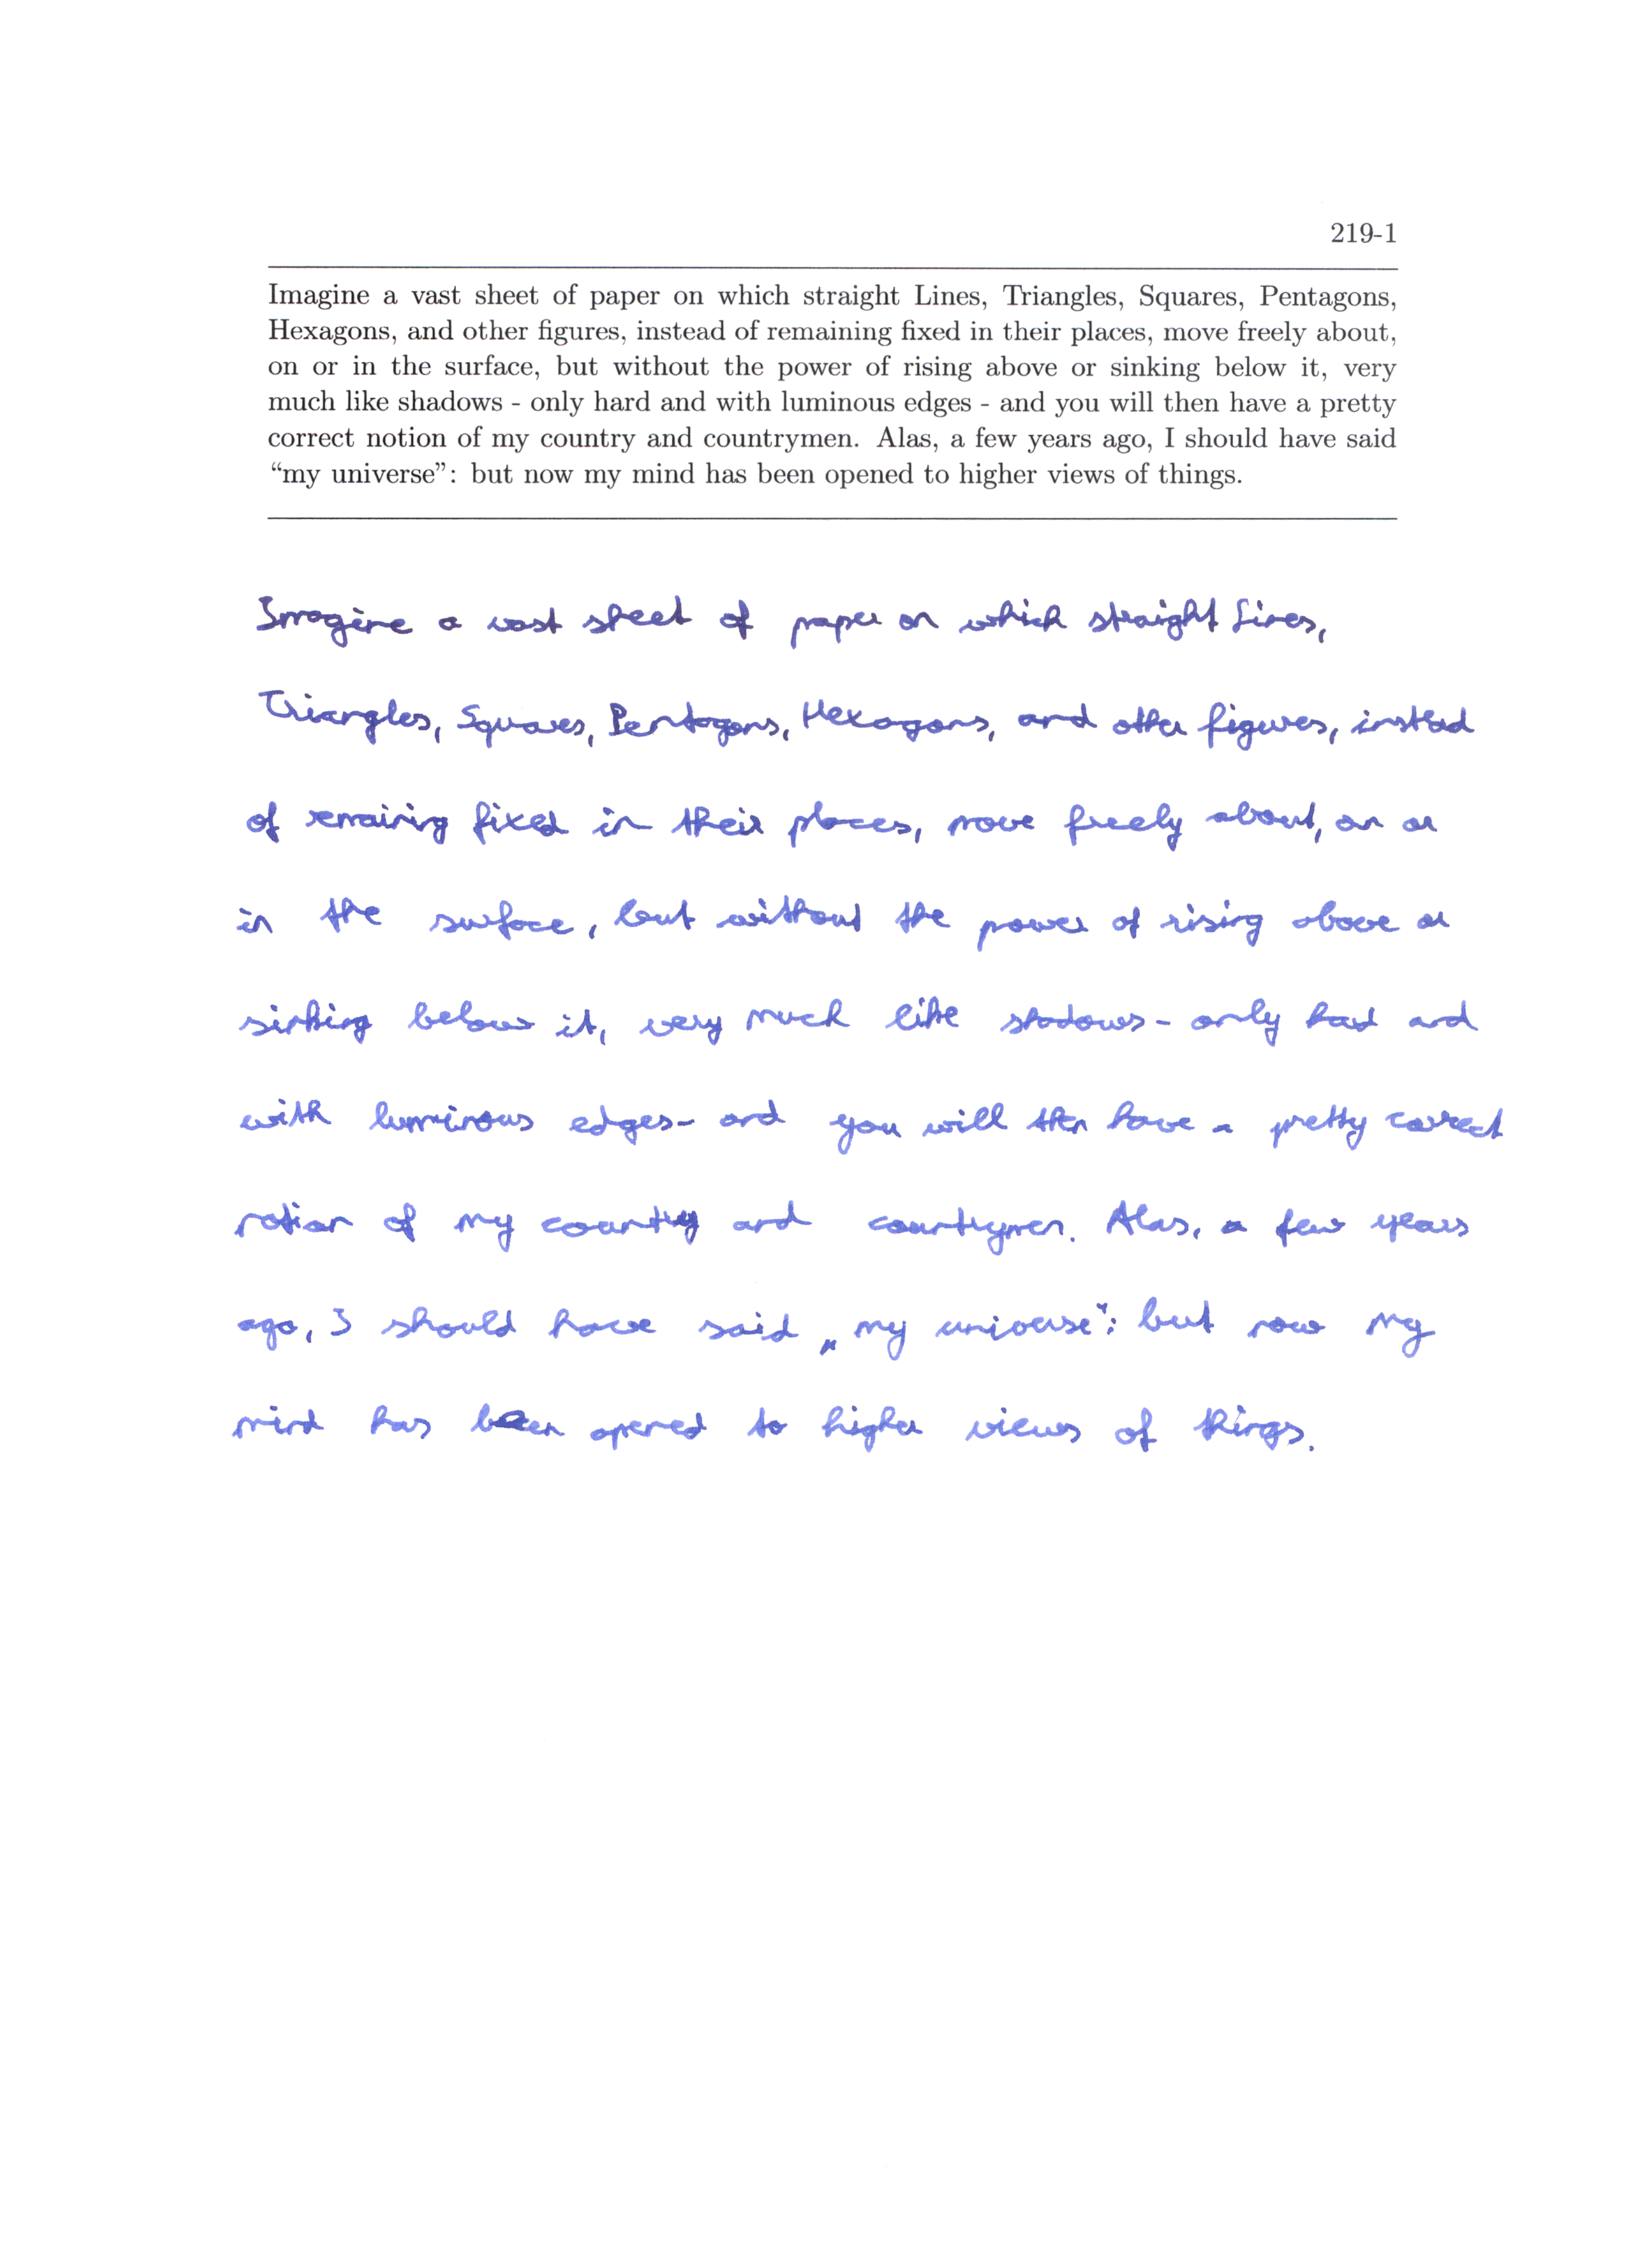 219-1
Imagine a vast sheet of paper on which straight Lines, Triangles, Squares, Pentagons,
Hexagons, and other figures, instead of remaining fixed in their places, move freely about,
on or in the surface, but without the power of rising above or sinking below it, very
much like shadows - only hard and with luminous edges - and you will then have a pretty
correct notion of my country and countrymen. Alas, a few years ago, I should have said
“my universe”: but now my mind has been opened to higher views of things.
Imagine a vast sheet of paper on which straight Lines,
Triangles, Squares, Pentagons, Hexagons, and other figures, instead
of remaining fixed in their places, move freely about, on or
in the surface, but without the power of rising above or
sinking below it, very much like shadows - only hard and
with luminous edges - and you will then have a pretty correct
notion of my country and countrymen. Alas, a few years
ago, I should have said „my universe”: but now my
mind has been opened to higher views of things.